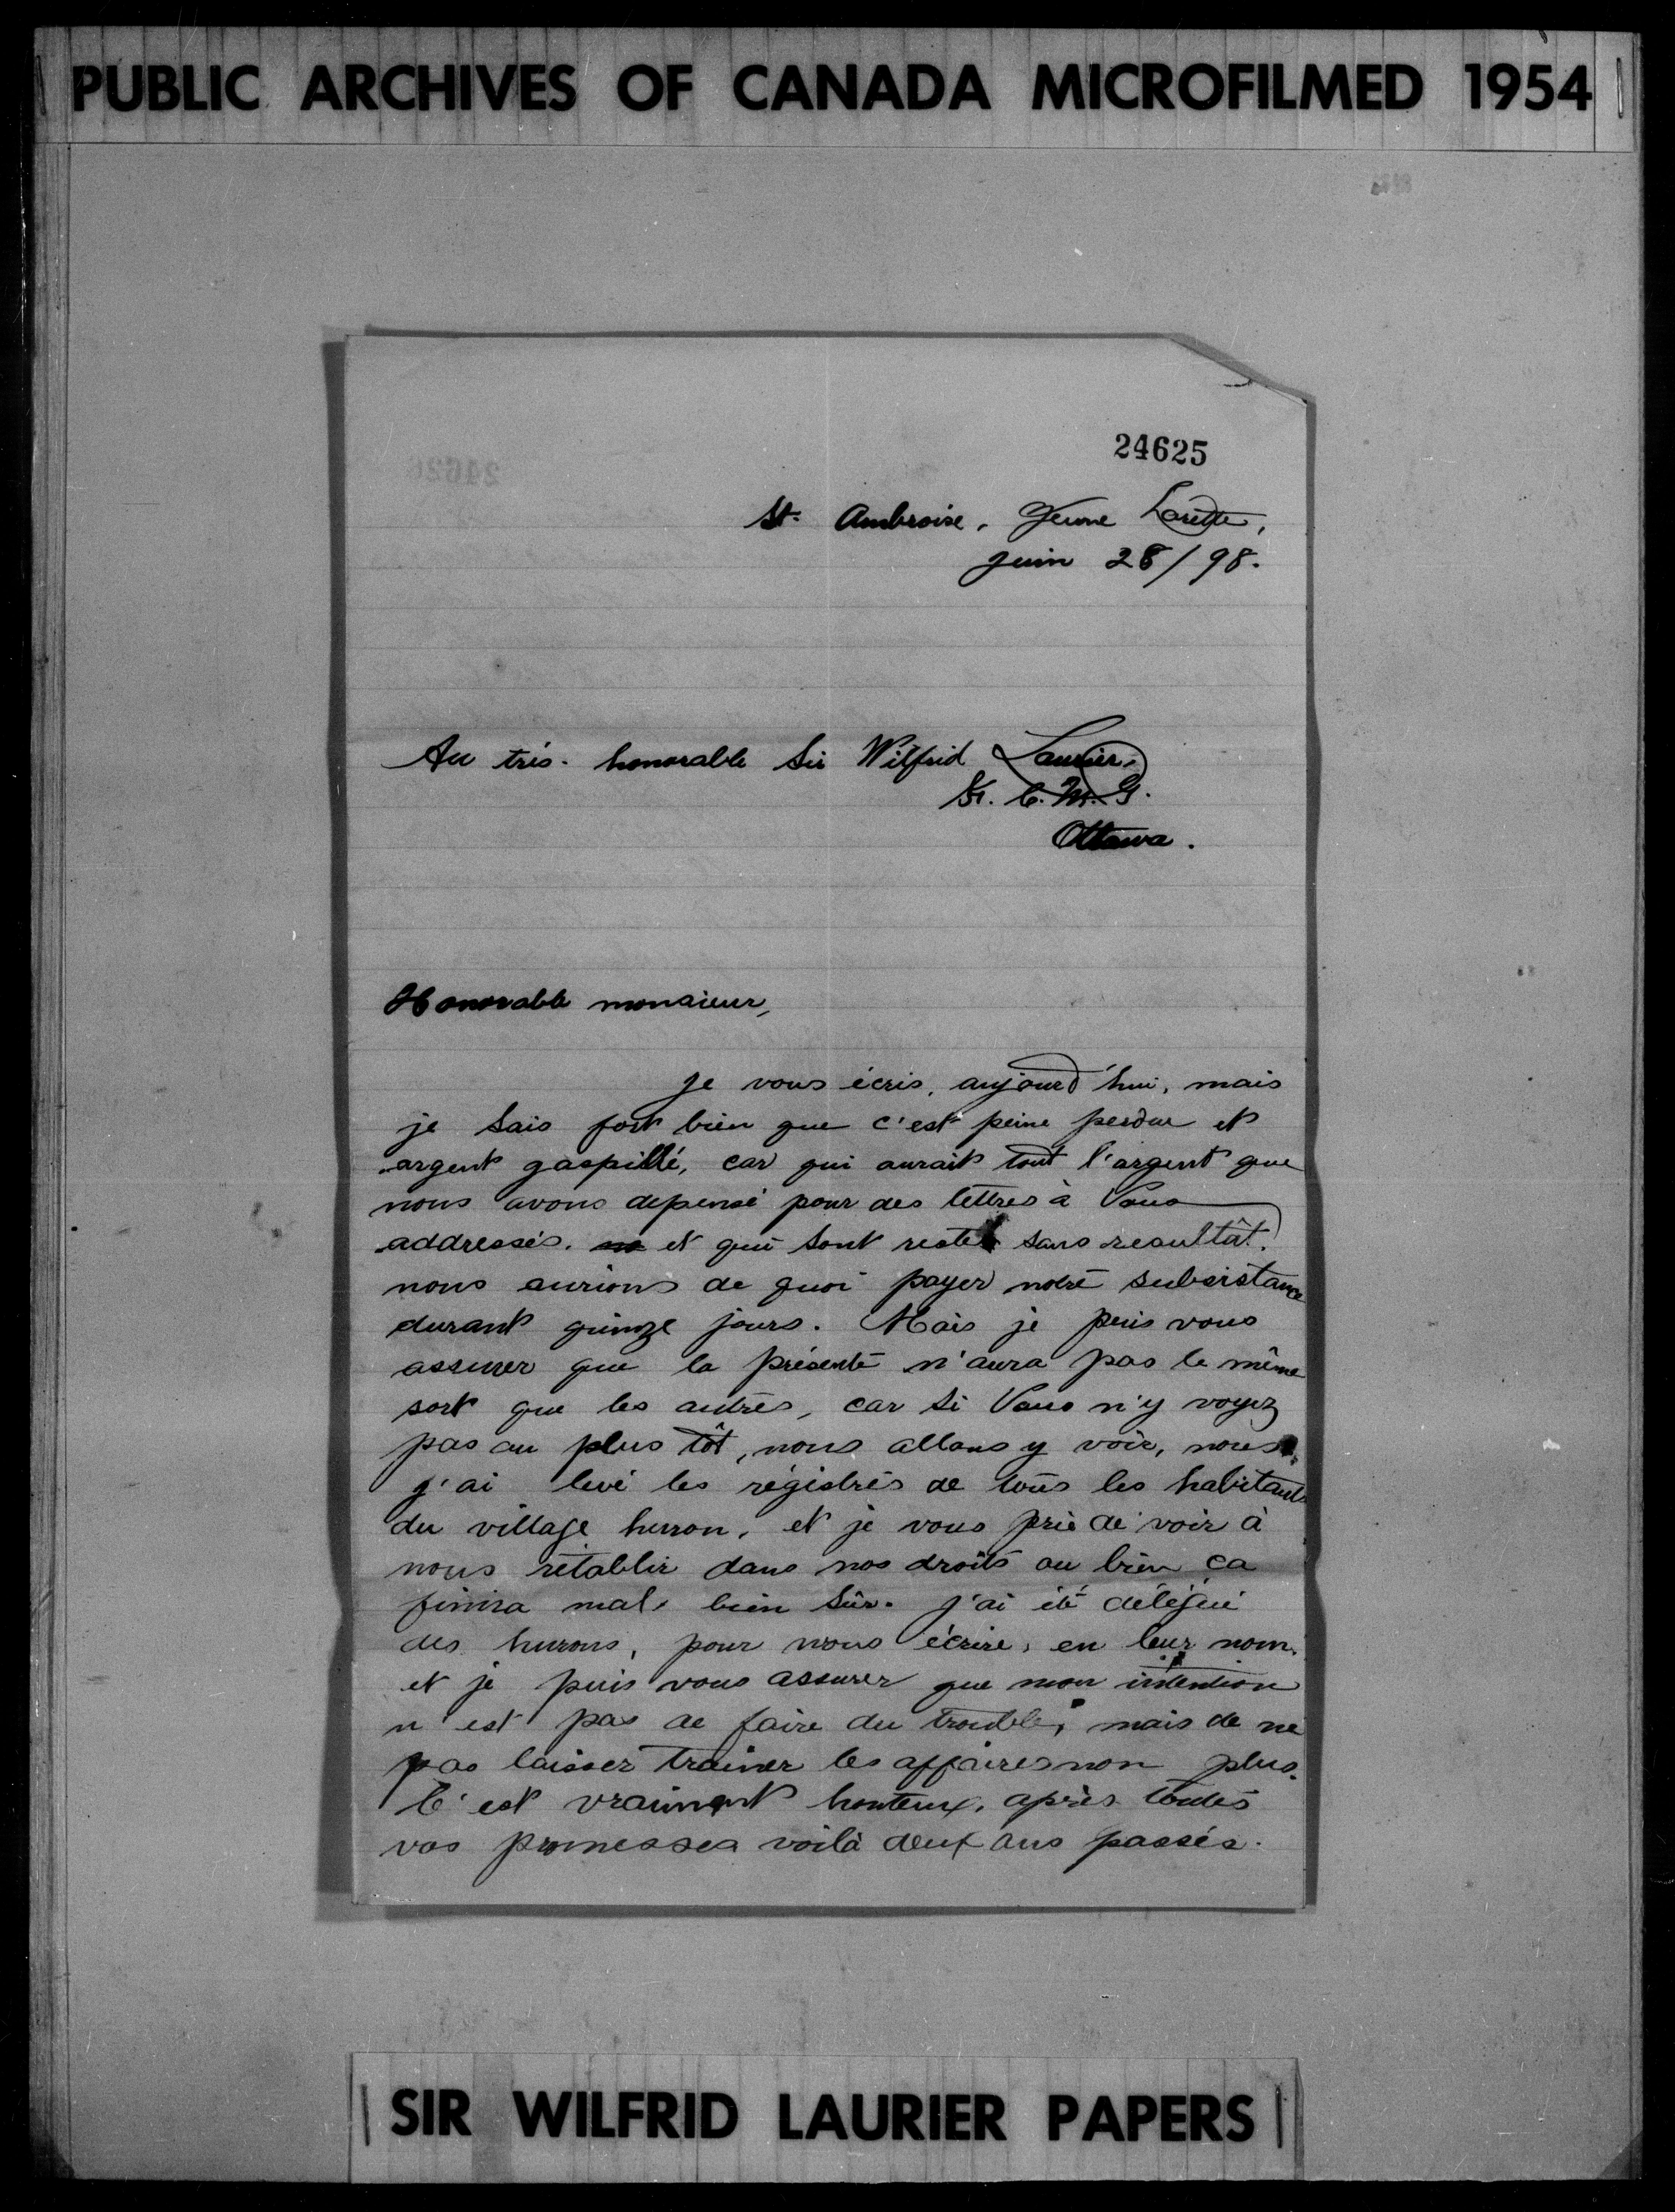 PUBLIC ARCHIVES OF CANADA MICROFILMED 1954
24625
St. Ambroise, Jeune Lorette,
Juin 28/98.
Au très-honorable Sir Wilfrid Laurier,
K. C. M. G.
Ottawa.
Honorable monsieur,
Je vous écris, aujourd'hui, mais
je sais fort bien que c'est peine perdue et
argent gaspillé, car qui aurait tout l'argent que
nous avons depensé pour des lettres à Vous
addressés. et qui sont restés sans resultât.
nous aurions de quoi payer notre subsistance
durant quinze jours. Mais je puis vous
assurer que la présente n'aura pas le même
sort que les autres, car si Vous n'y voyez
pas au plus tôt, nous allons y voir, nous.
J'ai levé les régistres de tous les habitants
du village huron, et je vous prie de voir à
nous rétablir dans nos droits ou bien ça
finira mal, bien sûr. J'ai été délégué
des hurons, pour vous écrire, en leur nom.
et je puis vous assurer que mon intention
n'est pas de faire du trouble, mais de ne
pas laisser trainer les affaires non plus.
C'est vraiment honteux, après toutes
vos promesses voilà deux ans passés.
SIR WILFRID LAURIER PAPERS